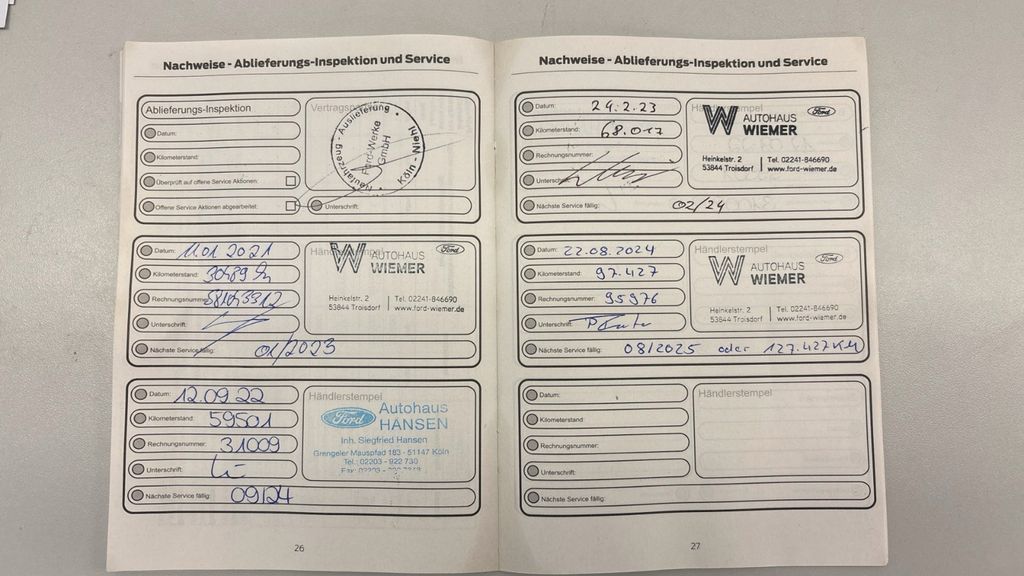 Nachweise - Ablieferungs-Inspektion und Service
Ablieferungs-Inspektion
Vertragspa
Datum:
Kilometerstand:
Überprüft auf offene Service Aktionen:
Offene Service Aktionen abgearbeitet:
Unterschrift:
Neufahrzeug - Auslieferung • Köln - Niehl •
Ford-Werke
GmbH
Datum: 11.01 2021
Kilometerstand:
Rechnungsnummer:
Unterschrift:
Nächste Service fällig: 01/2023
W AUTOHAUS
WIEMER
Ford
Heinkelstr. 2 Tel. 02241-846690
53844 Troisdorf www.ford-wiemer.de
Datum: 12.09.22
Kilometerstand: 59501
Rechnungsnummer: 31009
Unterschrift:
Nächste Service fällig: 09/24
Händlerstempel
Ford Autohaus
HANSEN
Inh. Siegfried Hansen
Grengeler Mauspfad 183 - 51147 Köln
Tel.: 02203 - 922 730
26
Nachweise - Ablieferungs-Inspektion und Service
Datum: 24.2.23
Kilometerstand: 68.017
Rechnungsnummer:
Unterschrift:
Nächste Service fällig: 02/24
W AUTOHAUS
WIEMER
Ford
Heinkelstr. 2 Tel. 02241-846690
53844 Troisdorf www.ford-wiemer.de
Datum: 22.08.2024
Kilometerstand: 97.427
Rechnungsnummer: 95976
Unterschrift:
Nächste Service fällig: 08/2025 oder 127.427 KM
Händlerstempel
W AUTOHAUS
WIEMER
Ford
Heinkelstr. 2 Tel. 02241-846690
53844 Troisdorf www.ford-wiemer.de
Datum:
Kilometerstand:
Rechnungsnummer:
Unterschrift:
Nächste Service fällig:
Händlerstempel
27